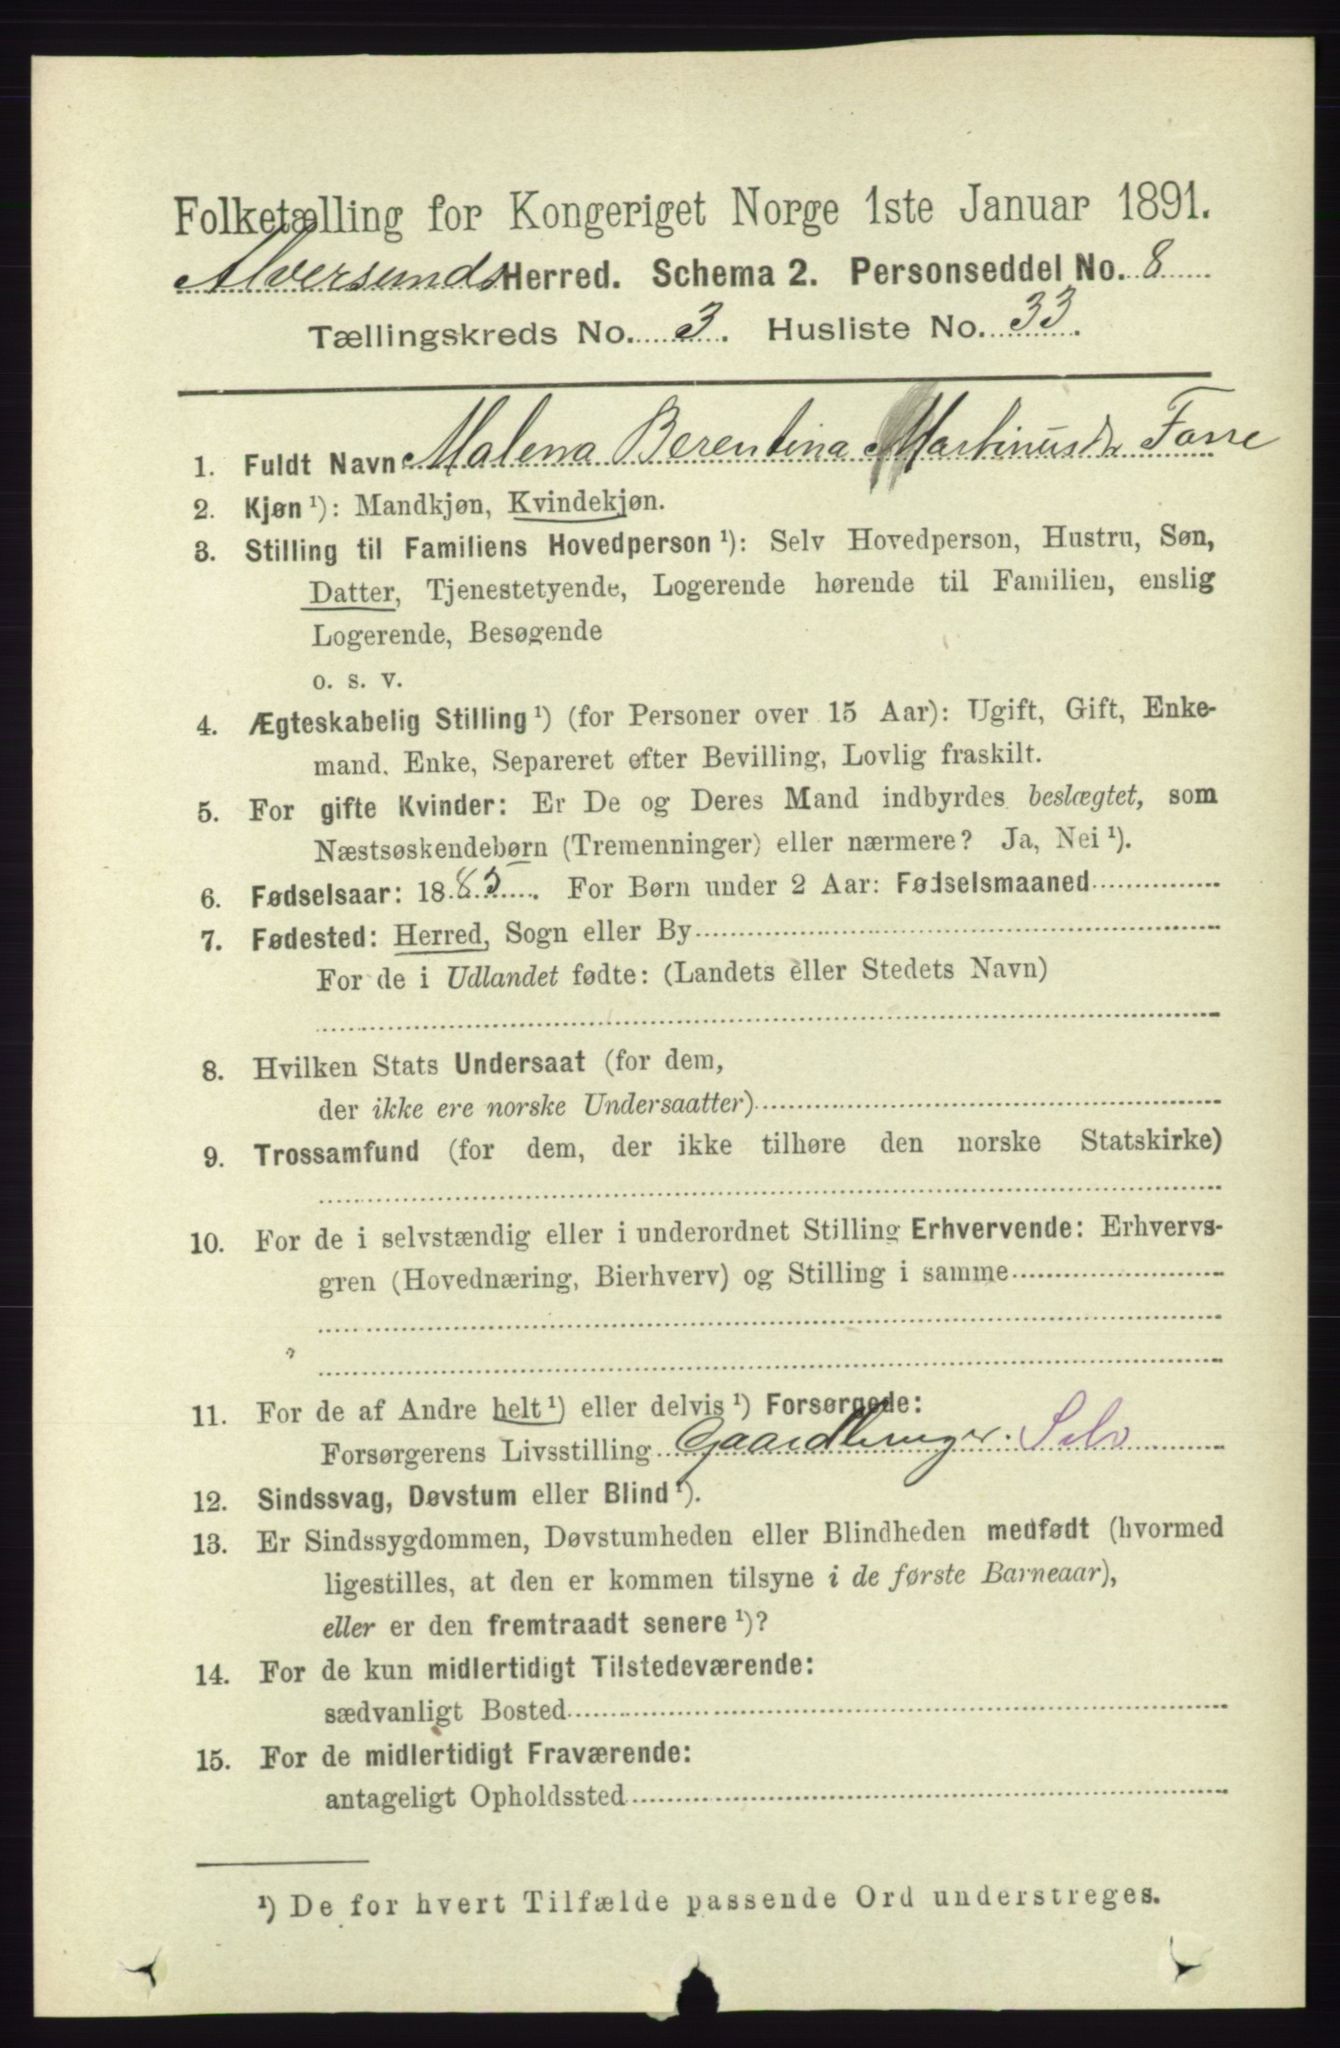 Folketælling for Kongeriget Norge 1ste Januar 1891.
Alversunds Herred. Schema 2. Personseddel No. 8
Tællingskreds No. 3. Husliste No. 33.
1. Fuldt Navn Malena Berentina Martinusdr Fosse
2. Kjøn ¹): Mandkjøn, Kvindekjøn.
3. Stilling til Familiens Hovedperson ¹): Selv Hovedperson, Hustru, Søn,
Datter, Tjenestetyende, Logerende hørende til Familien, enslig
Logerende, Besøgende
o. s. v.
4. Ægteskabelig Stilling ¹) (for Personer over 15 Aar): Ugift, Gift, Enke-
mand, Enke, Separeret efter Bevilling, Lovlig fraskilt.
5. For gifte Kvinder: Er De og Deres Mand indbyrdes beslægtet, som
Næstsøskendebørn (Tremenninger) eller nærmere? Ja, Nei ¹).
6. Fødselsaar: 1885. For Børn under 2 Aar: Fødselsmaaned
7. Fødested: Herred, Sogn eller By
For de i Udlandet fødte: (Landets eller Stedets Navn)
8. Hvilken Stats Undersaat (for dem,
der ikke ere norske Undersaatter)
9. Trossamfund (for dem, der ikke tilhøre den norske Statskirke)
10. For de i selvstændig eller i underordnet Stilling Erhvervende: Erhvervs-
gren (Hovednæring, Bierhverv) og Stilling i samme
11. For de af Andre helt ¹) eller delvis ¹) Forsørgede:
Forsørgerens Livsstilling Gaardbruger. Selv
12. Sindssvag, Døvstum eller Blind ¹).
13. Er Sindssygdommen, Døvstumheden eller Blindheden medfødt (hvormed
ligestilles, at den er kommen tilsyne i de første Barneaar),
eller er den fremtraadt senere ¹)?
14. For de kun midlertidigt Tilstedeværende:
sædvanligt Bosted
15. For de midlertidigt Fraværende:
antageligt Opholdssted
¹) De for hvert Tilfælde passende Ord understreges.